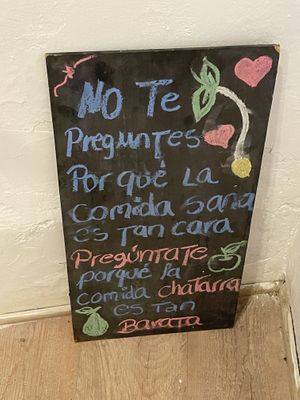 NO Te
Preguntes
Por qué La
Comida sana
es Tan cara
PregúnTaTe
porqué la
comida chatarra
es Tan
BaraTa